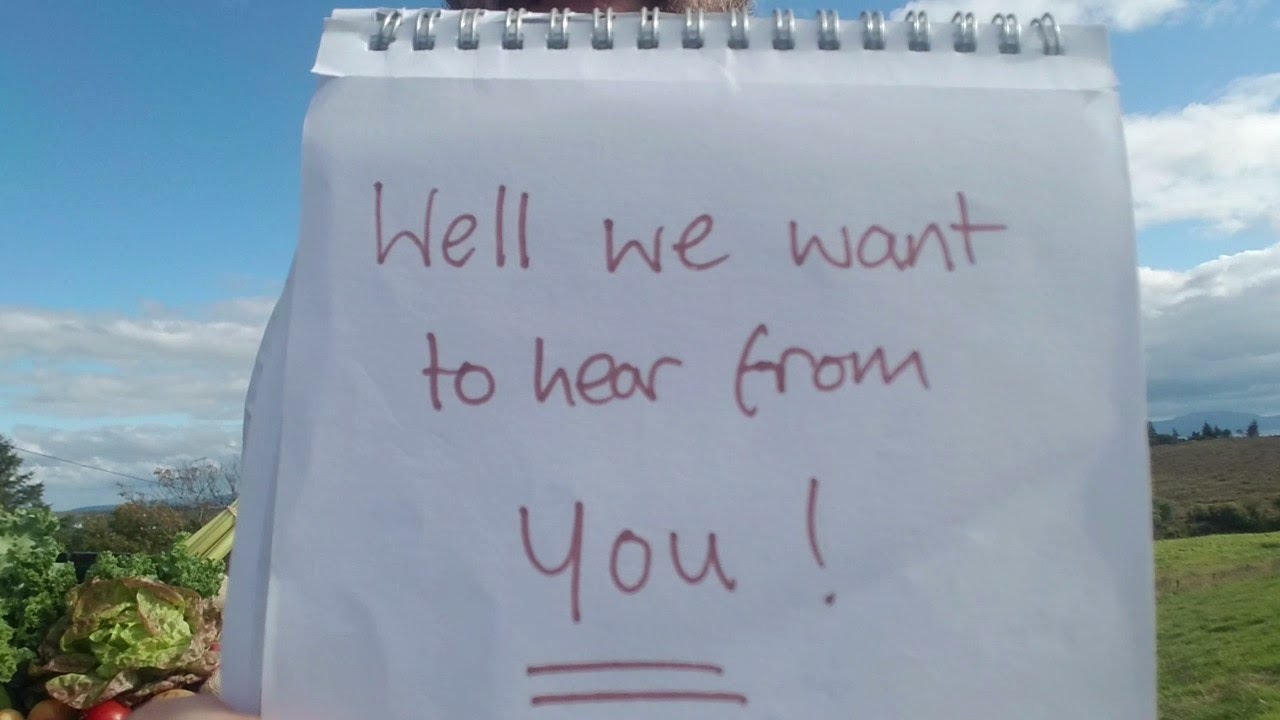 Well we want
to hear from
You!